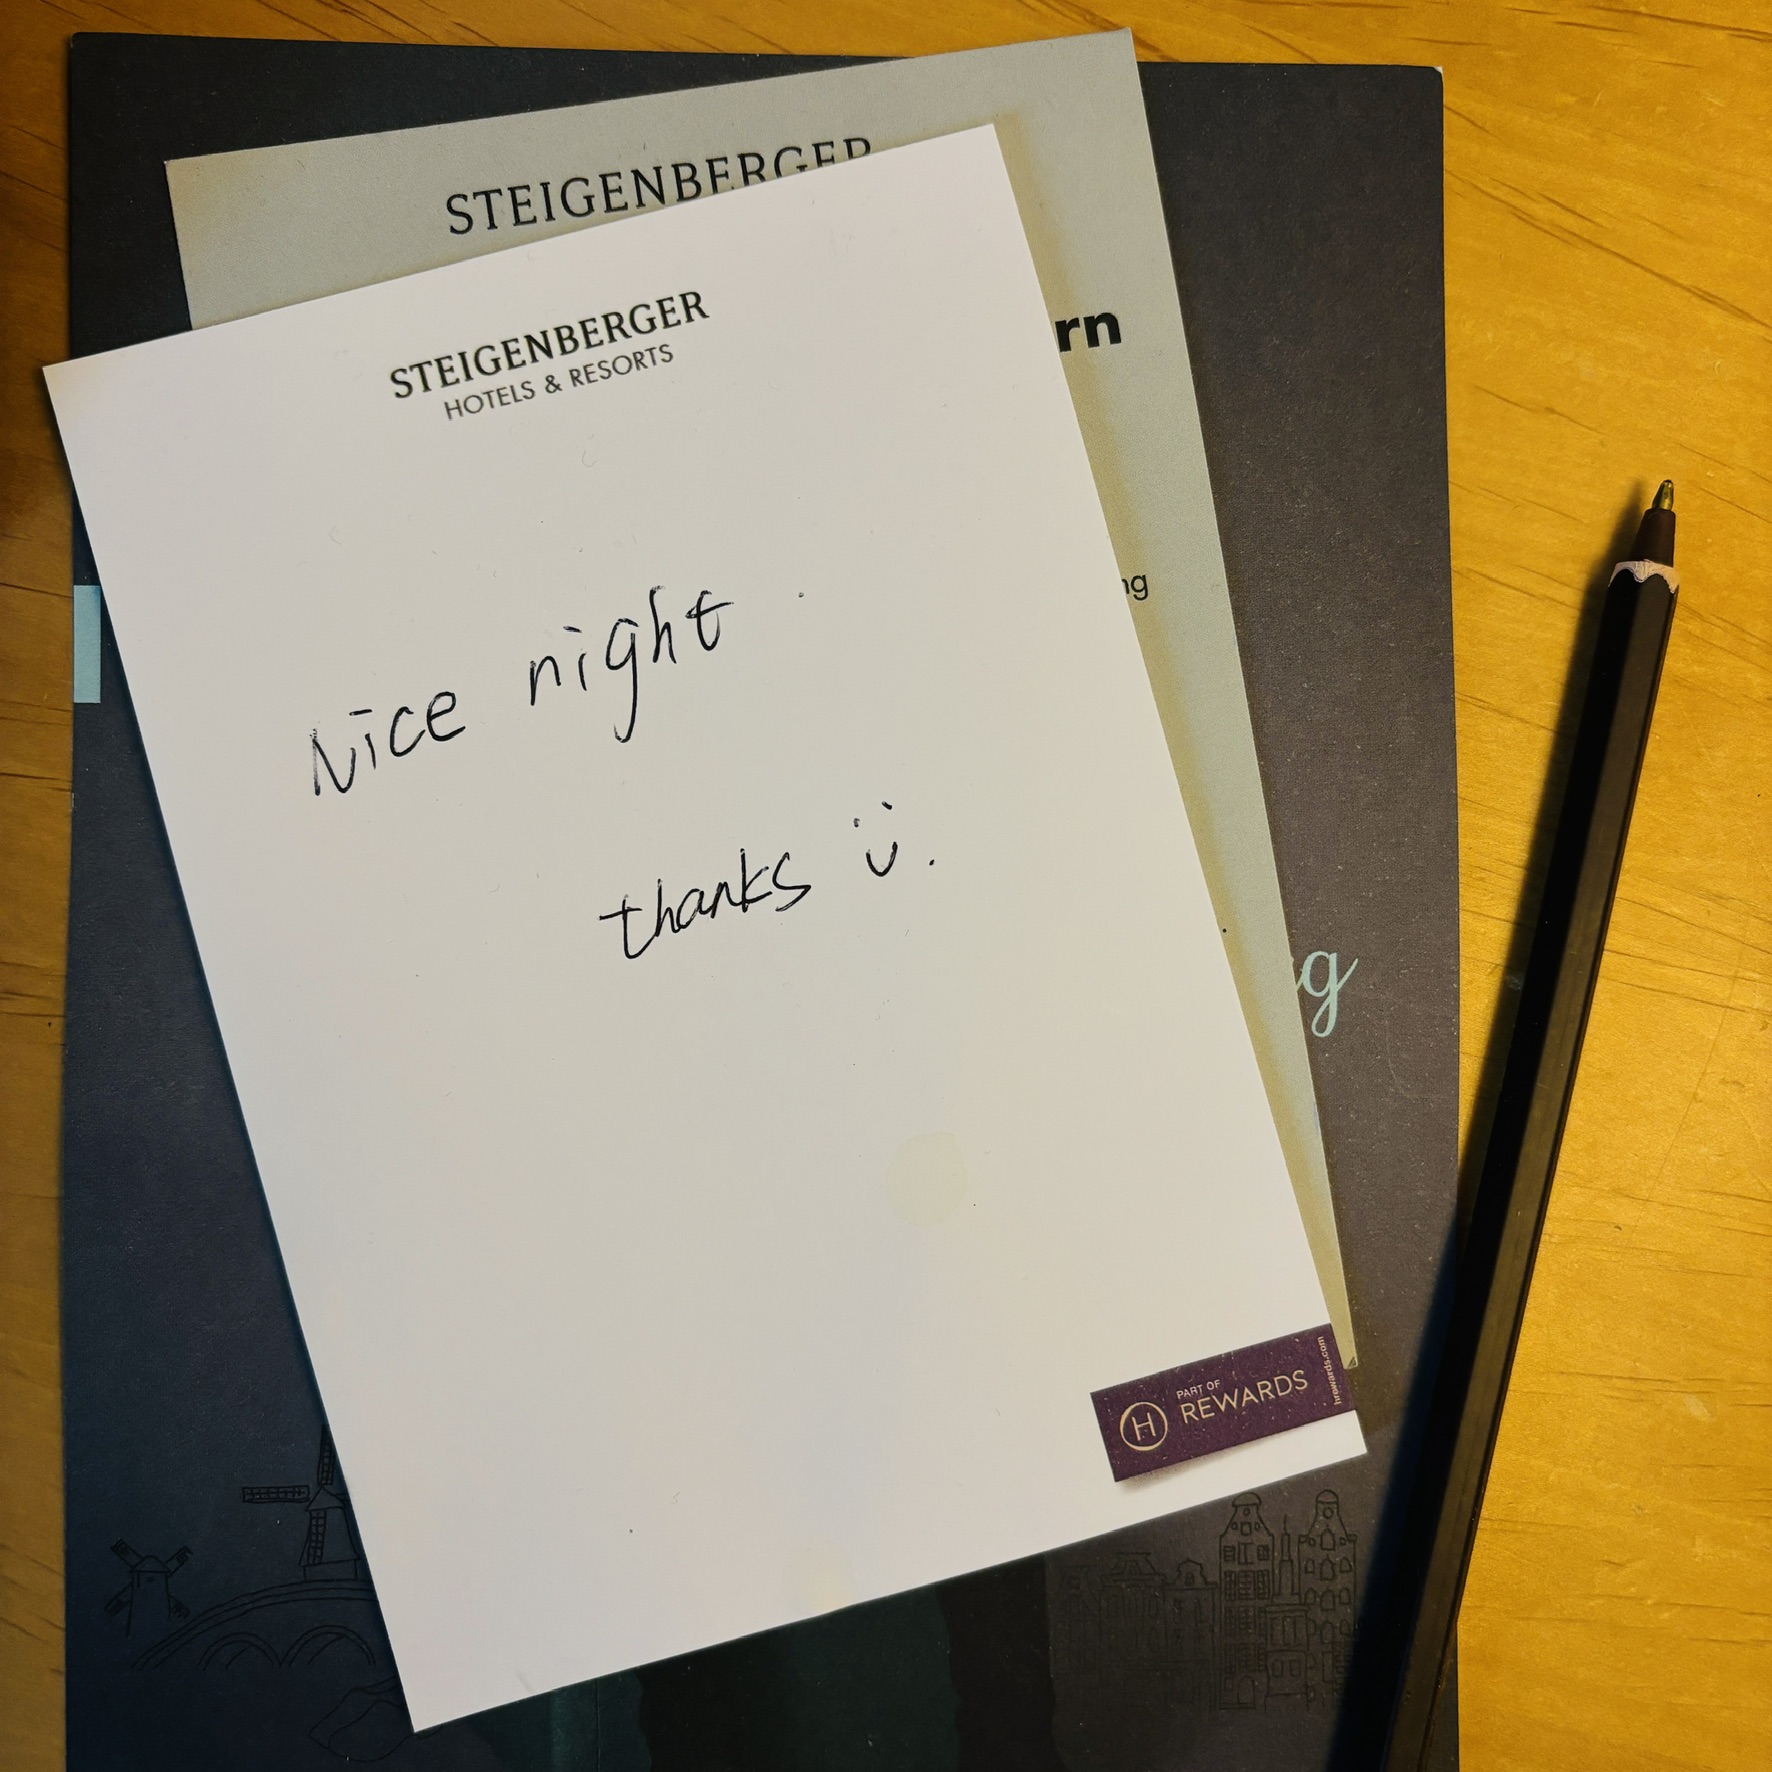 STEIGENBERGER
STEIGENBERGER
HOTELS & RESORTS
rn
ng
Nice night.
thanks ü.
g
PART OF
H REWARDS
hrewards.com